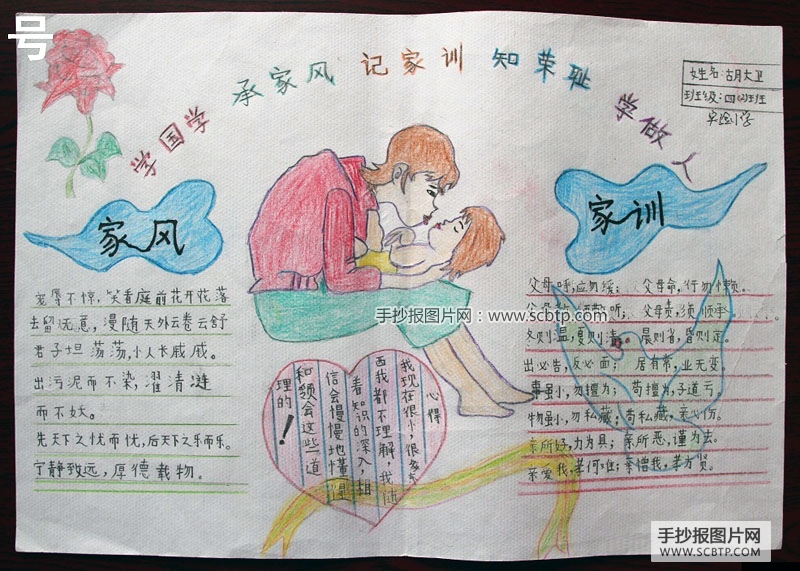 号
学国学 承家风 记家训 知荣耻 学做人
姓名:胡大卫
班级:四(2)班
实验小学
家风
宠辱不惊,笑看庭前花开花落
去留无意,漫随天外云卷云舒
君子坦荡荡,小人长戚戚。
出污泥而不染,濯清涟
而不妖。
先天下之忧而忧,后天下之乐而乐。
宁静致远,厚德载物。
家训
父母呼,应勿缓; 父母命,行勿懒。
父母 听; 父母责,须顺承
冬则温,夏则清 晨则省,昏则定。
出必告,反必面; 居有常,业无变。
事虽小,勿擅为; 苟擅为,子道亏
物虽小,勿私藏; 苟私藏,亲心伤。
亲所好,力为具; 亲所恶,谨为去。
亲爱我,孝何难; 亲憎我,孝方贤。
心得
我现在很小,很多东
西我都不理解,我
着知识的深入,相
信会慢慢地懂得
和领会这些道
理的!
手抄报图片网:www.scbtp.com
手抄报图片网
WWW.SCBTP.COM